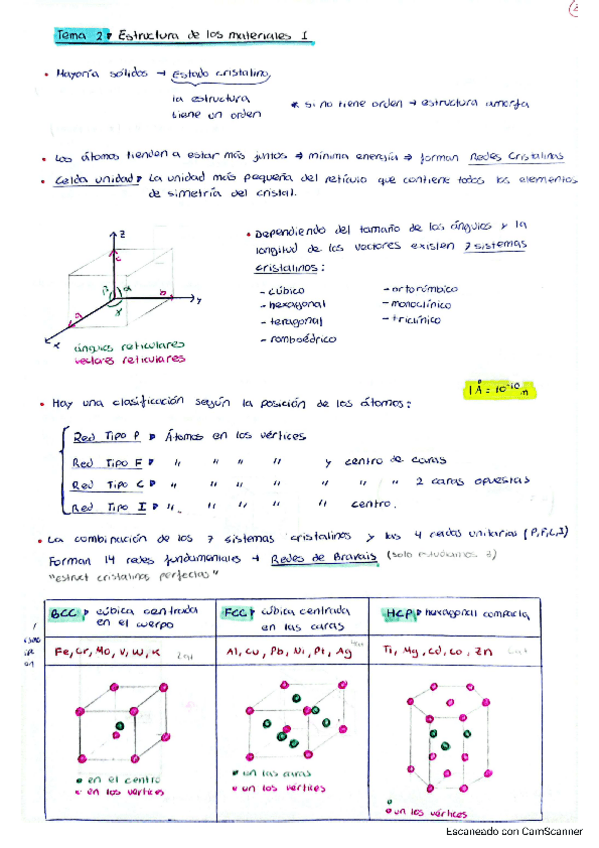 Tema 2 Estructura de los materiales I
• Mayoría sólidos → Estado cristalino,
la estructura
tiene un orden
* si no tiene orden → estructura amorfa
• Los átomos tienden a estar más juntos → mínima energía → forman Redes Cristalinas
• Celda unidad: La unidad más pequeña del retículo que contiene todos los elementos
de simetría del cristal.
• Dependiendo del tamaño de los ángulos y la
longitud de los vectores existen 7 sistemas
cristalinos:
- cúbico
- hexagonal
- teragonal
- romboédrico
- ortorúmbico
- monoclínico
- triclínico
z
c
β
α
γ
b
y
a
x
ángulos reticulares
vectores reticulares
1 Å = 10⁻¹⁰ m
• Hay una clasificación según la posición de los átomos:
Red Tipo P Átomos en los vértices
Red Tipo F " " " " y centro de caras
Red Tipo C " " " " " " " 2 caras opuestas
Red Tipo I " " " " " centro.
• La combinación de los 7 sistemas cristalinos y las 4 celdas unitarias (P,F,C,I)
Forman 14 redes fundamentales → Redes de Bravais (solo estudiamos 3)
"estruct cristalinos perfectas"
BCC cúbica centrada
en el cuerpo
FCC cúbica centrada
en las caras
HCP hexagonal compacta
Fe, Cr, Mo, V, W, K
Al, Cu, Pb, Ni, Pt, Ag
Ti, Mg, Cd, Co, Zn
• en el centro
• en los vértices
• en las caras
• en los vértices
• en los vértices
Escaneado con CamScanner